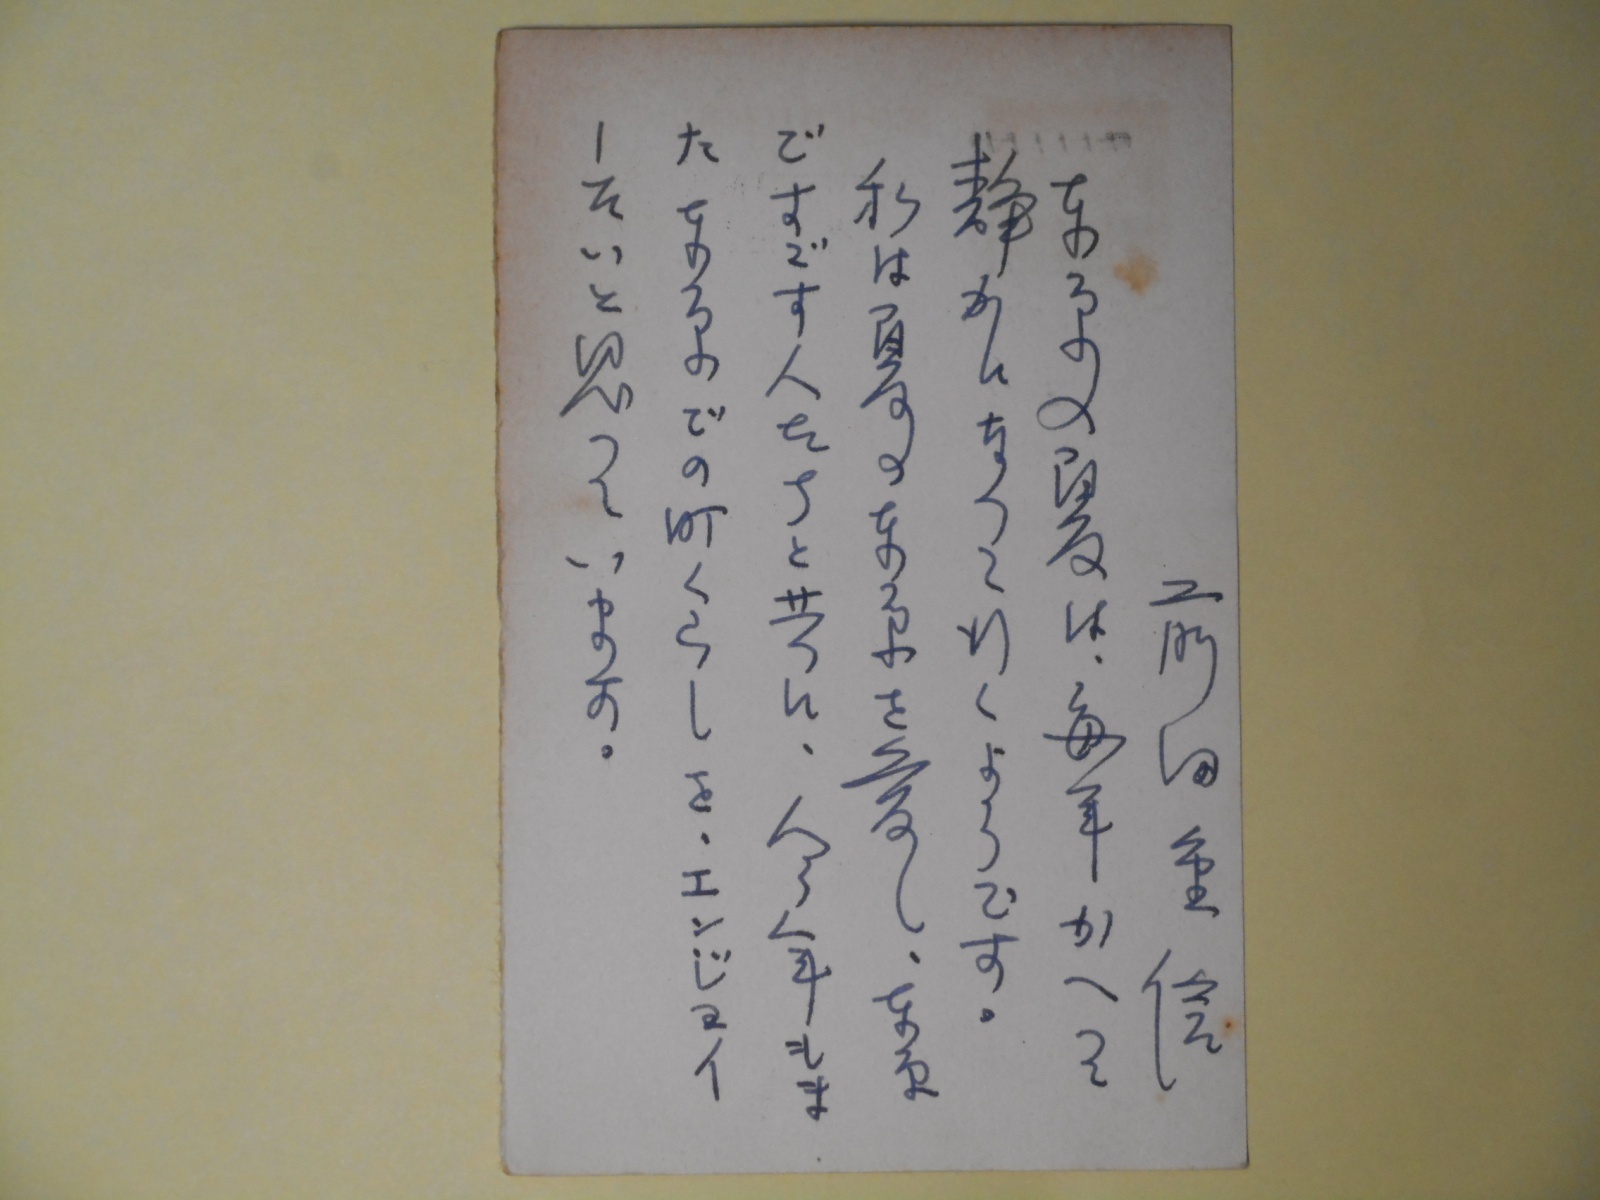 前田重信
東京の夏は、毎年かへって
静かになって行くようです。
私は夏の東京を愛し、東京
ですごす人たちと共に、今年もま
た東京での町くらしを、エンジョイ
したいと思っています。